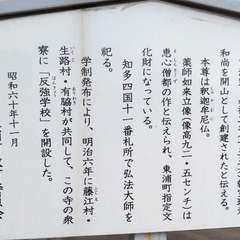 和尚を開山として創建されたと伝える。
本尊は釈迦牟尼仏。
薬師如来立像（像高九二・五センチ）は
恵心僧都の作と伝えられ、東浦町指定文
化財になっている。
知多四国十一番札所で弘法大師を
祀る。
学制発布により、明治六年に藤江村・
生路村・有脇村が共同して、この寺の衆
寮に「反強学校」を開設した。
昭和六十年十一月